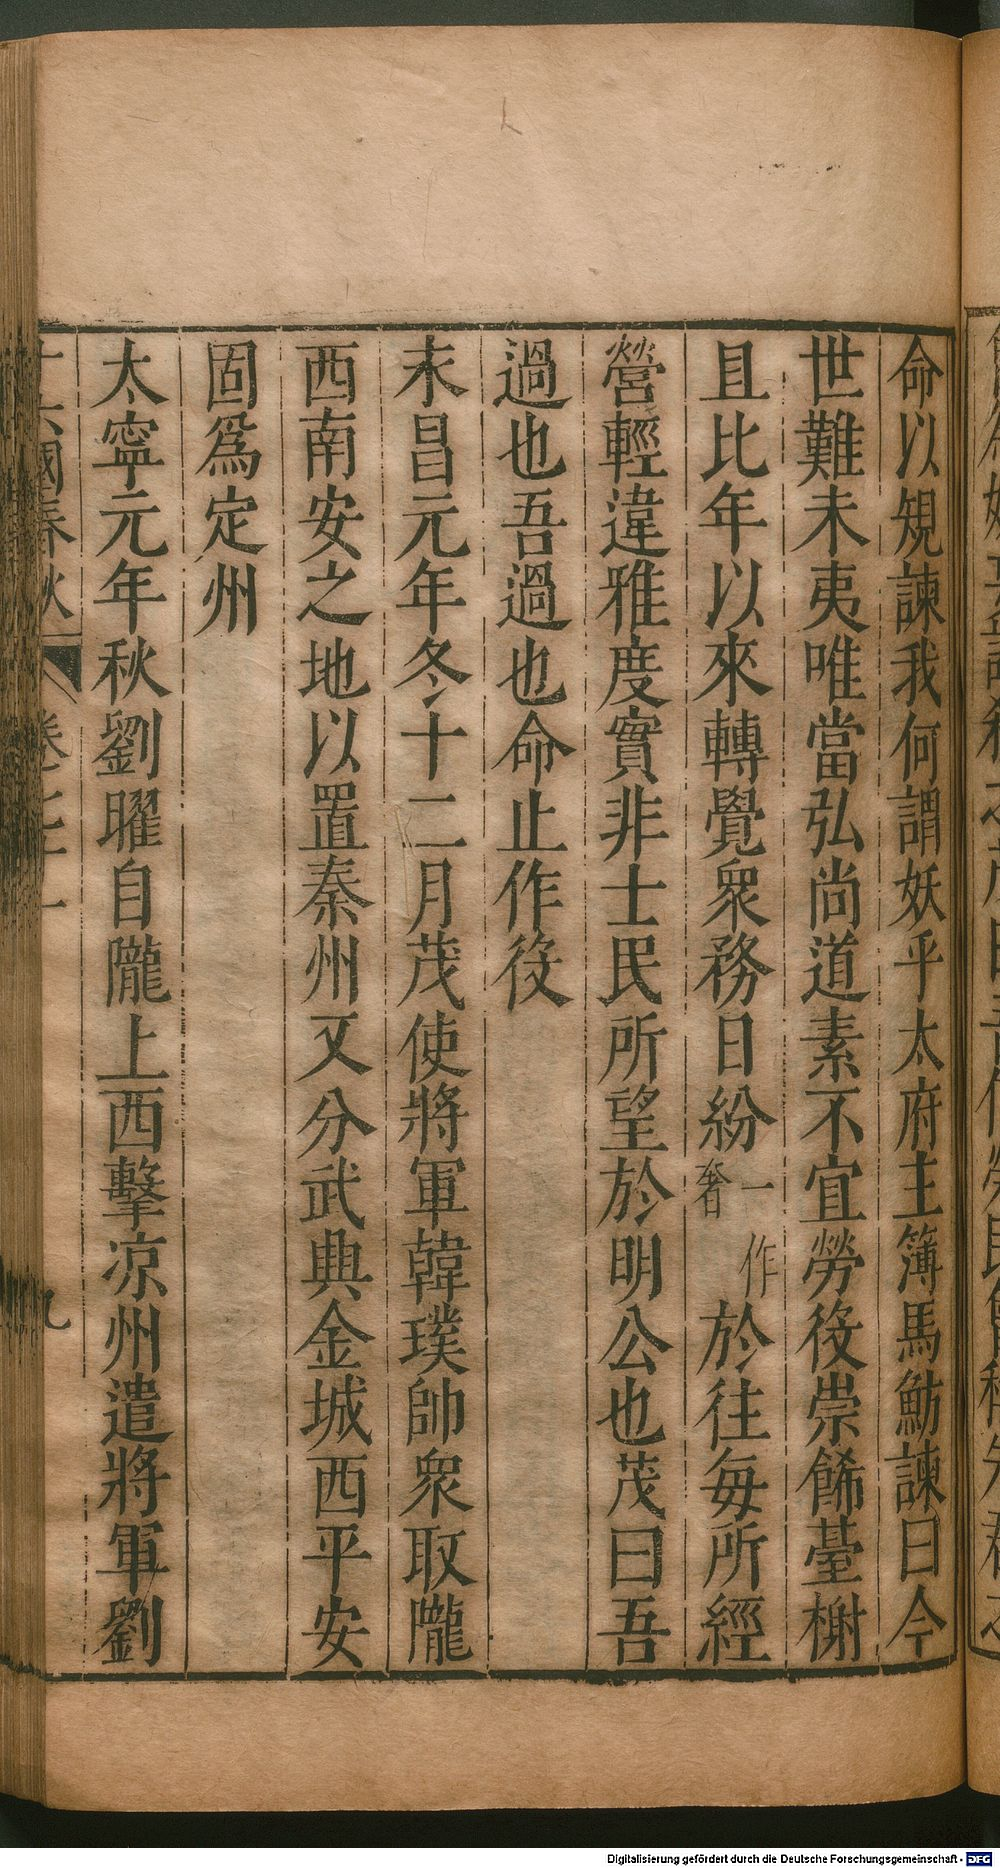 命以規諫我何謂妖乎太府主簿馬魴諫曰今
世難未夷唯當弘尚道素不宜勞役崇餙臺榭
且比年以來轉覺衆務日紛一作奢於往每所經
營輕違雅度實非士民所望於明公也茂曰吾
過也吾過也命止作役
末昌元年冬十二月茂使將軍韓璞帥衆取隴
西南安之地以置秦州又分武興金城西平安
固爲定州
太寧元年秋劉曜自隴上西擊凉州遣將軍劉
十六國春秋 卷七十一 九
Digitalisierung gefördert durch die Deutsche Forschungsgemeinschaft - DFG